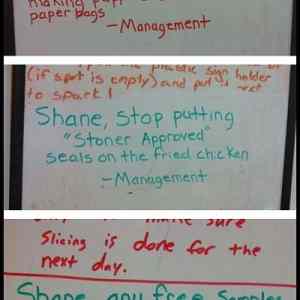 making pupp
paper bags
—Management
plastic sign holder
(if spot is empty) and put it next
to spark!
Shane, stop putting
"Stoner Approved"
seals on the fried chicken
—Management
make sure
Slicing is done for the
next day.
Shane, any free samples